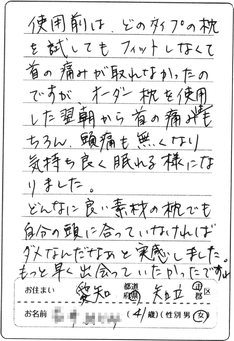 使用前は、どのタイプの枕
を試してもフィットしなくて
首の痛みが取れなかったの
ですが オーダー枕を使用
した翌朝から首の痛みも
もちろん、頭痛も無くなり
気持ち良く眠れる様にな
りました。
どんなに良い素材の枕でも
自分の頭に合っていなければ
ダメなんだなあと実感しました。
もっと早く出会っていたかったですっ
お住まい 愛知 都道府県 知立 市郡区
お名前 (41歳)(性別 男 女)